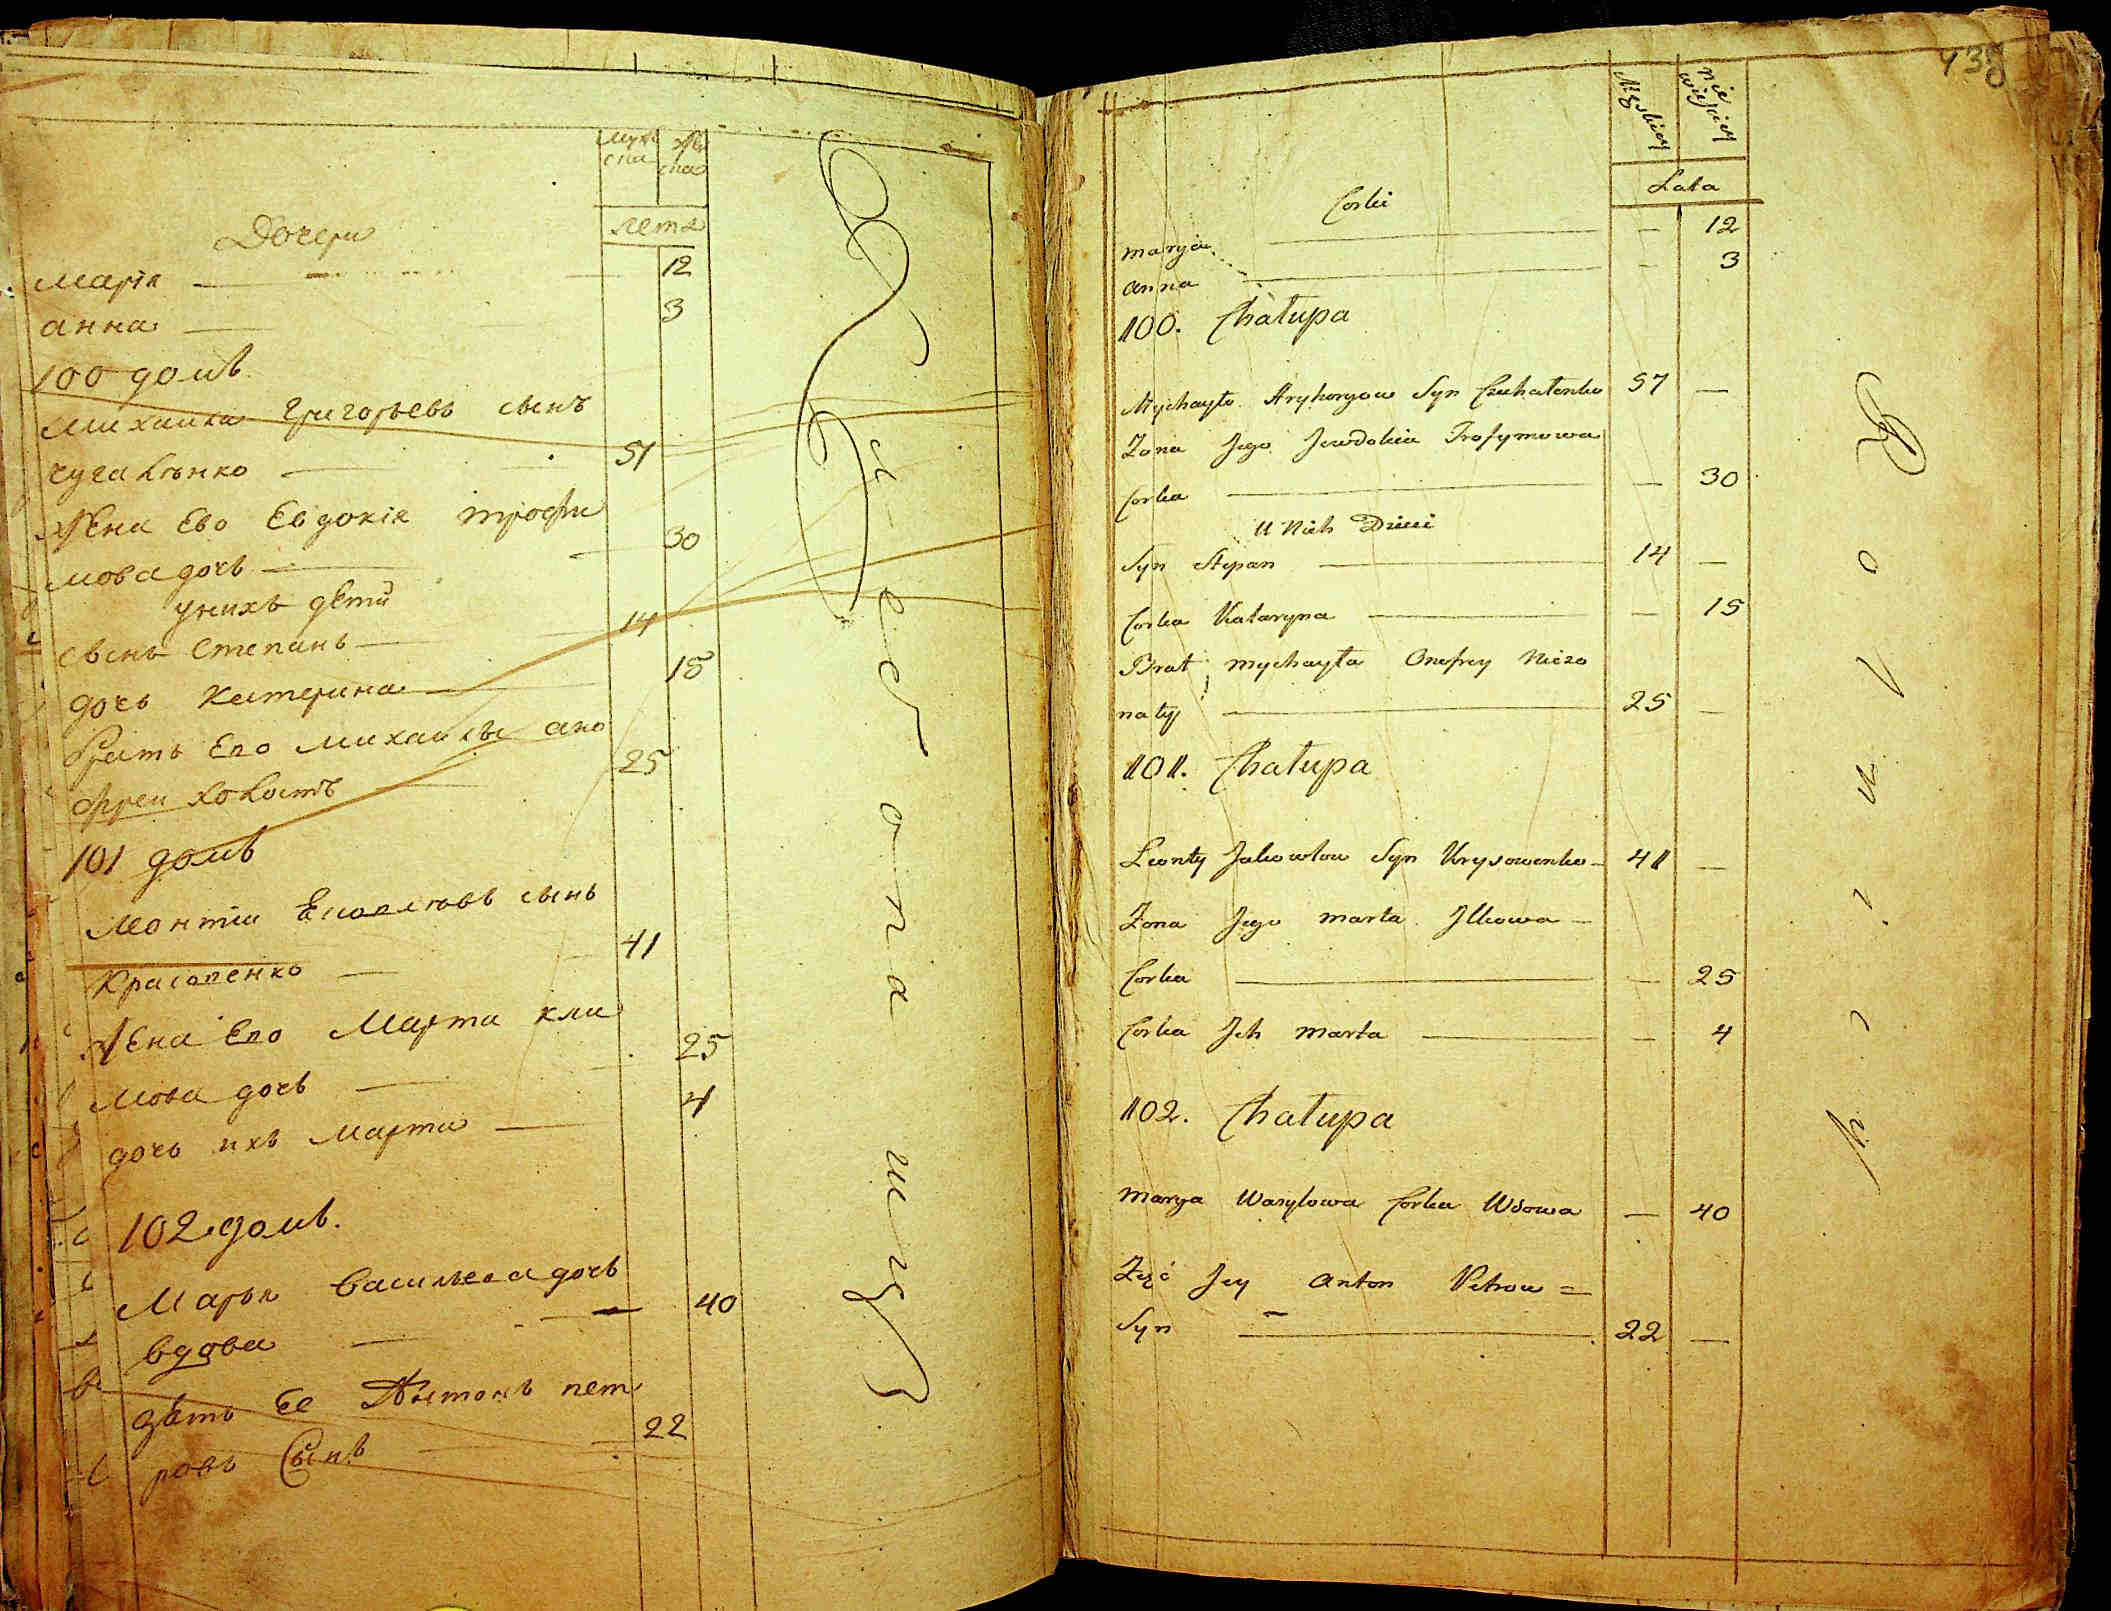 муж
ска
же
ска
лета
Дочери
Марiя 12
анна 3
100 домъ
Михайла Григорьевъ сынъ
чугалѣнко 51
Жена Ево Евдокiя трофи
мова дочь 30
унихъ дѣти
сынъ Степанъ 14
дочь Катерина 15
братъ Его Михайлы ано
фреи холостъ 25
101 домъ
леонтiи сынъ
Красовенко 41
Жена Его Марта кли
мова дочь 25
дочь ихъ Марта 4
102 домъ.
Марья Васильева дочь
вдова 40
зѣть Ее Антонъ пет
ровъ Сынъ 22
438
Męskiey
nie
wieściey
Lata
Corki
marya — 12
anna — 3
100. Chałupa
Mychayło Hryhoryow Syn Czuhalenko 57 —
Zona Jego Jewdokia Trofymowa
Corka — 30
U Nich Dzieci
Syn Stepan 14 —
Corka Kataryna — 15
Brat mychayła Onofrey Nieżo
naty 25 —
101. Chałupa
Leonty Jakowlow Syn Krysowenko 41 —
Zona Jego marta Jlkowa
Corka — 25
Corka Jch marta — 4
102. Chałupa
marya Wasylowa Corka Wdowa — 40
Zęć Jey anton Petrow =
Syn 22 —